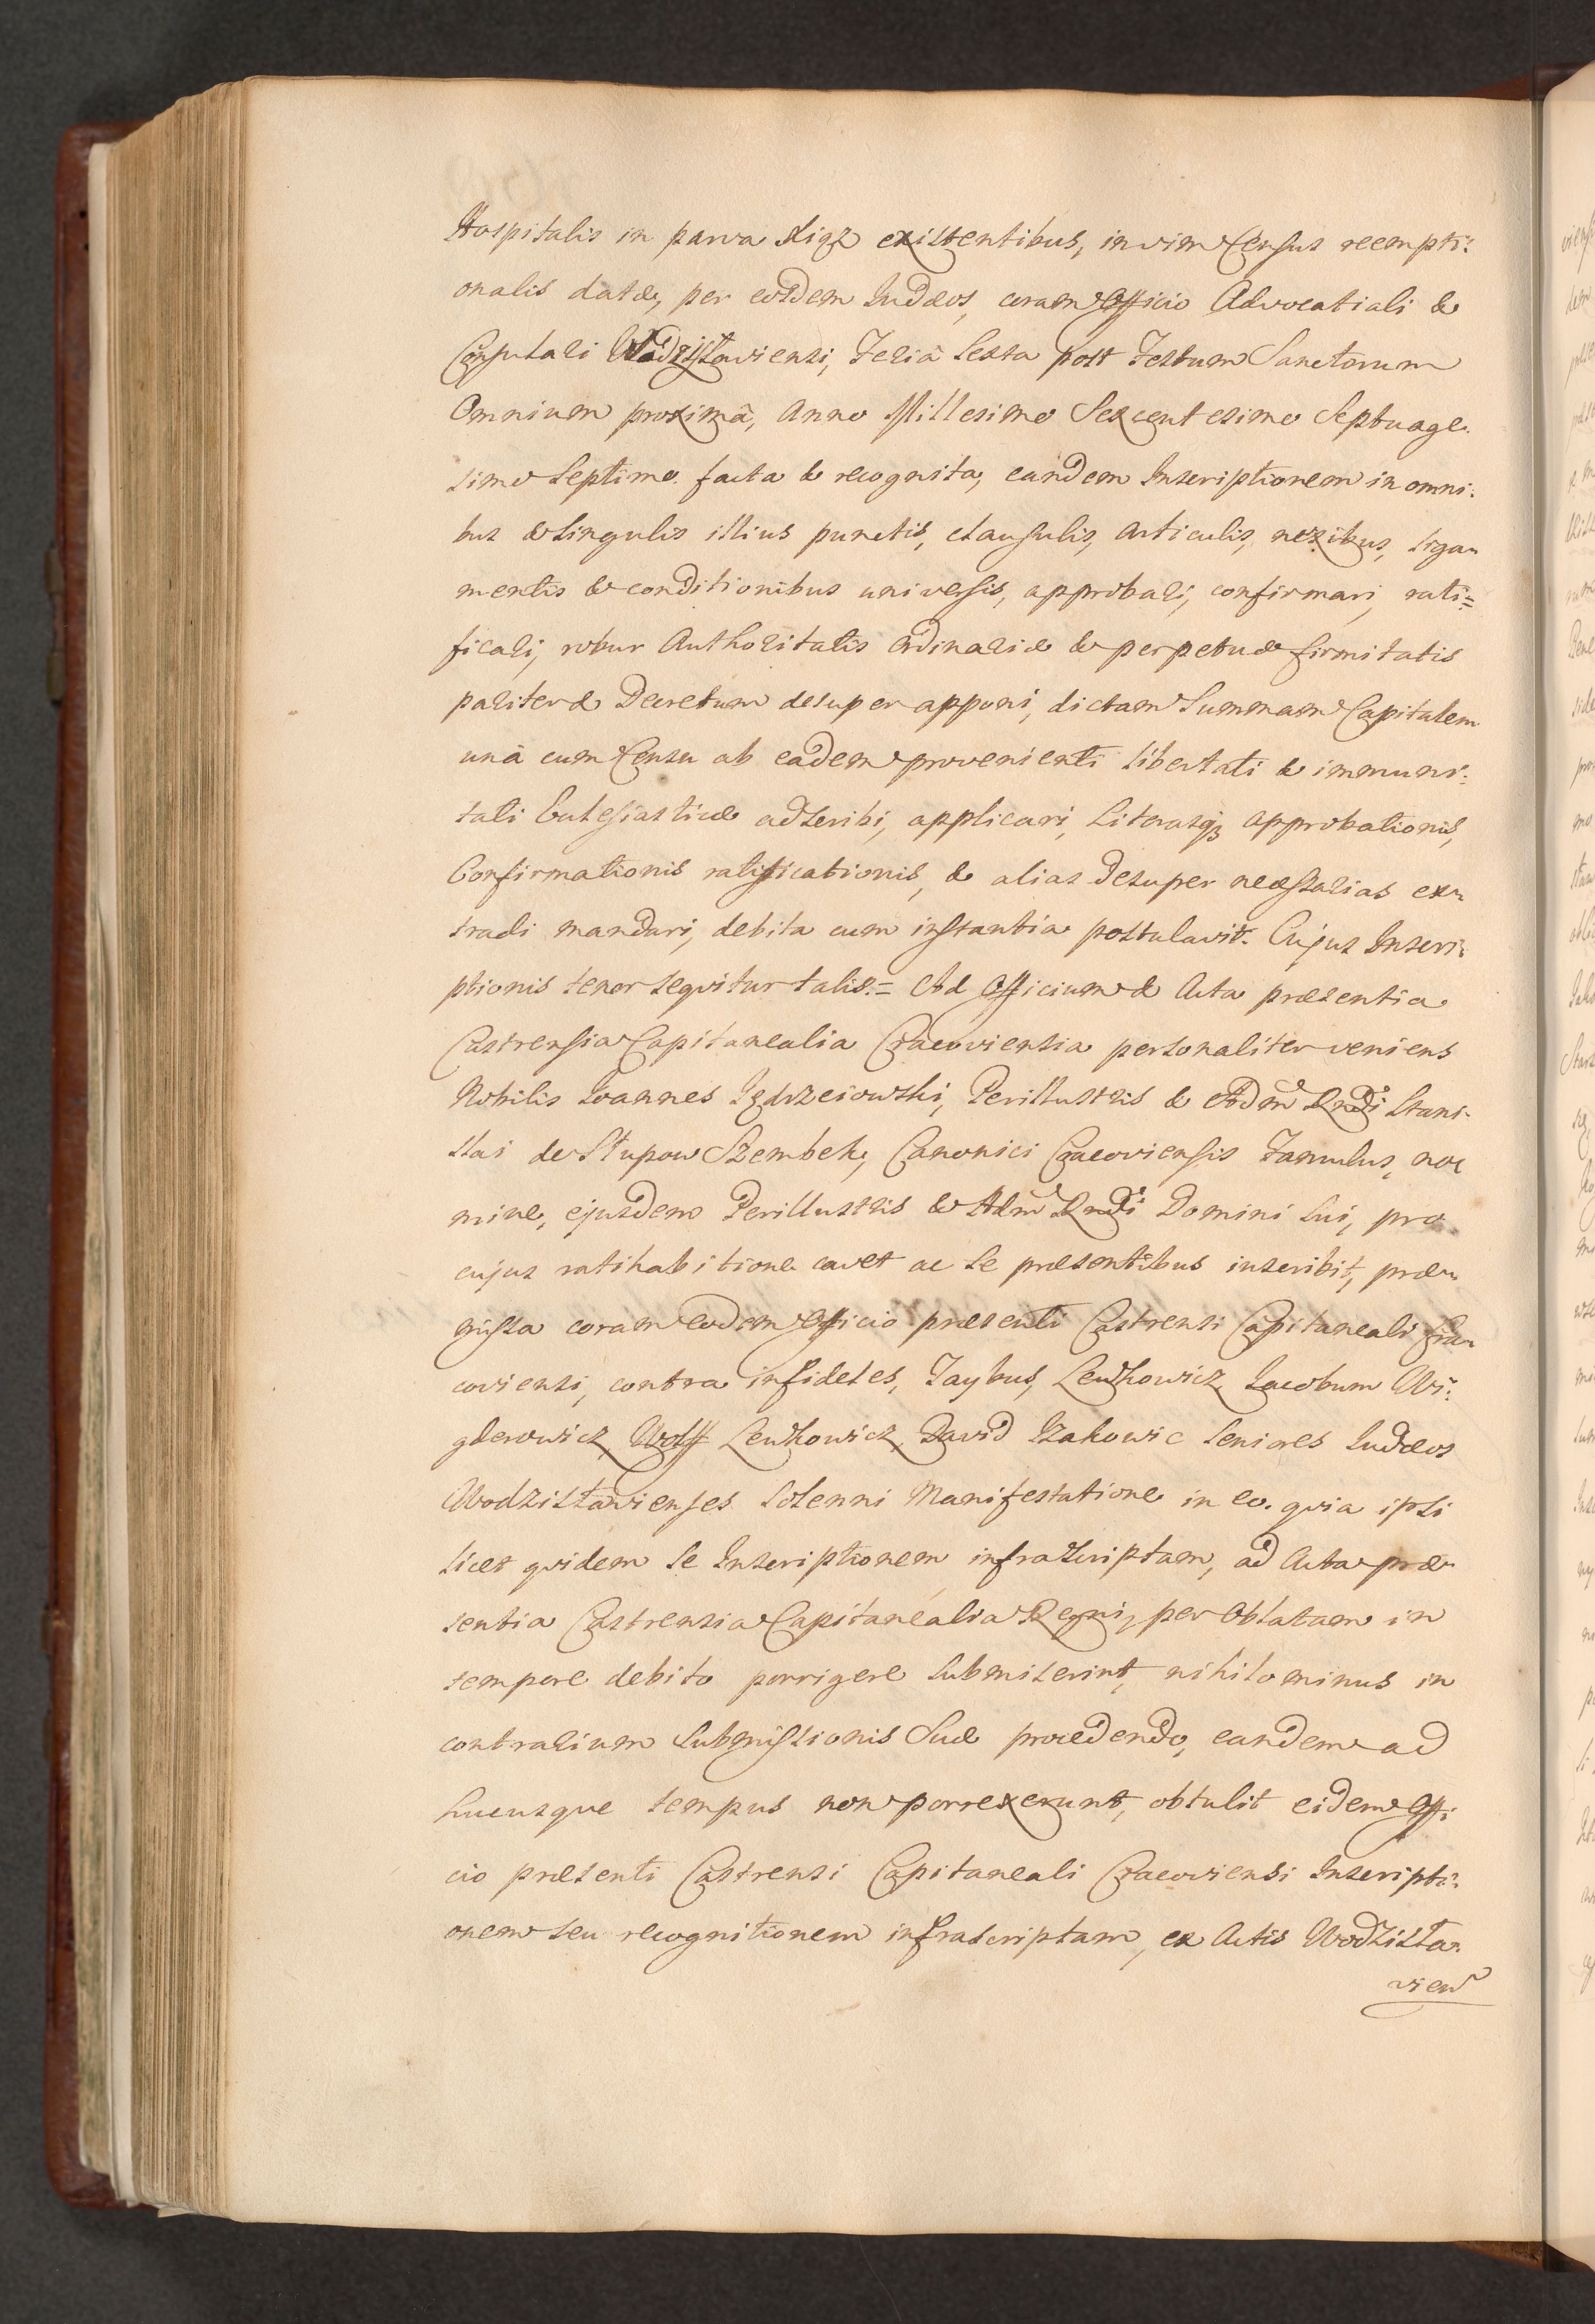 Hospitalis in parva Xiąż existentibus, in vim Census reempti:
onalis datæ, per eosdem Iudæos, coram Officio Advocatiali &
Consulari Wodzisłaviensi, Feria Sexta post Festum Sanctorum
Omnium proximâ, Anno Millesimo Sexcentesimo Septuage.
simo Septimo. facta & recognita, eandem Inscriptionem in omni:
bus & singulis illius punctis, clausulis, articulis, nexibus, liga-
mentis & conditionibus universis, approbari, confirmari, rati=
ficari, robur Authoritatis ordinariæ & perpetuæ firmitatis
pariter & Decretum desuper apponi, dictam Summam Capitalem
unâ cum Censu ab eadem provenienti libertati & immuni:
tati Ecclesiasticæ adscribi, applicari, Literasq3 approbationis,
Confirmationis ratificationis, & alias desuper necessarias ex-
tradi mandari, debita cum instantia postulavit. Cujus Inscri-
ptionis tenor sequitur talis.= Ad Officium & Acta præsentia
Castrensia Capitanealia Cracoviensia personaliter veniens
Nobilis Ioannes Jędrzeiowski, Perillustris & Adm Rndi Stani-
slai de Słupow Szembek, Canonici Cracoviensis Famulus, no
mine, ejusdem Perillustris & Adm Rndi Domini sui, pro
cujus ratihabitione cavet ac se præsentibus inscribit, præ-
missa coram eodem Officio præsenti Castrensi Capitaneali Cra-
coviensi, contra infideles, Jaybus, Lewkowicz, Iacobum Wi:
gderowicz, Wolff Lewkowicz, David Izakowic Seniores Iudæos
Wodzisłavienses solenni Manifestatione in eo. quia ipsi
licet quidem se Inscriptionem infrascriptam, ad Acta præ
sentia Castrensia Capitanealia Regni, per oblatam in
tempore debito porrigere submiserint, nihilominus in
contrarium submissionis suæ procedendo, eandem ad
hucusque tempus non porrexerunt, obtulit eidem Offi
cio præsenti Castrensi Capitaneali Cracoviensi Inscripti:
onem seu recognitionem infrascriptam, ex Actis Wodzisła-
vien